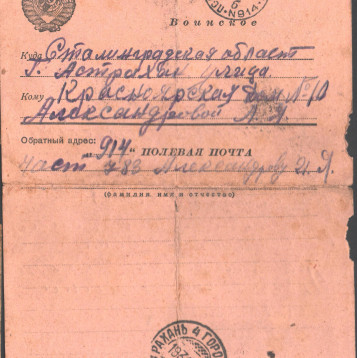 №914
Воинское
Куда Сталинградская област
г. Астрахан улица
Кому Красноярская дом № 10
Александровой А. Я.
Обратный адрес: 914 ПОЛЕВАЯ ПОЧТА
част 783 Александров И. Я.
(фамилия, имя и отчество)
РАХАНЬ 4 ГОРО